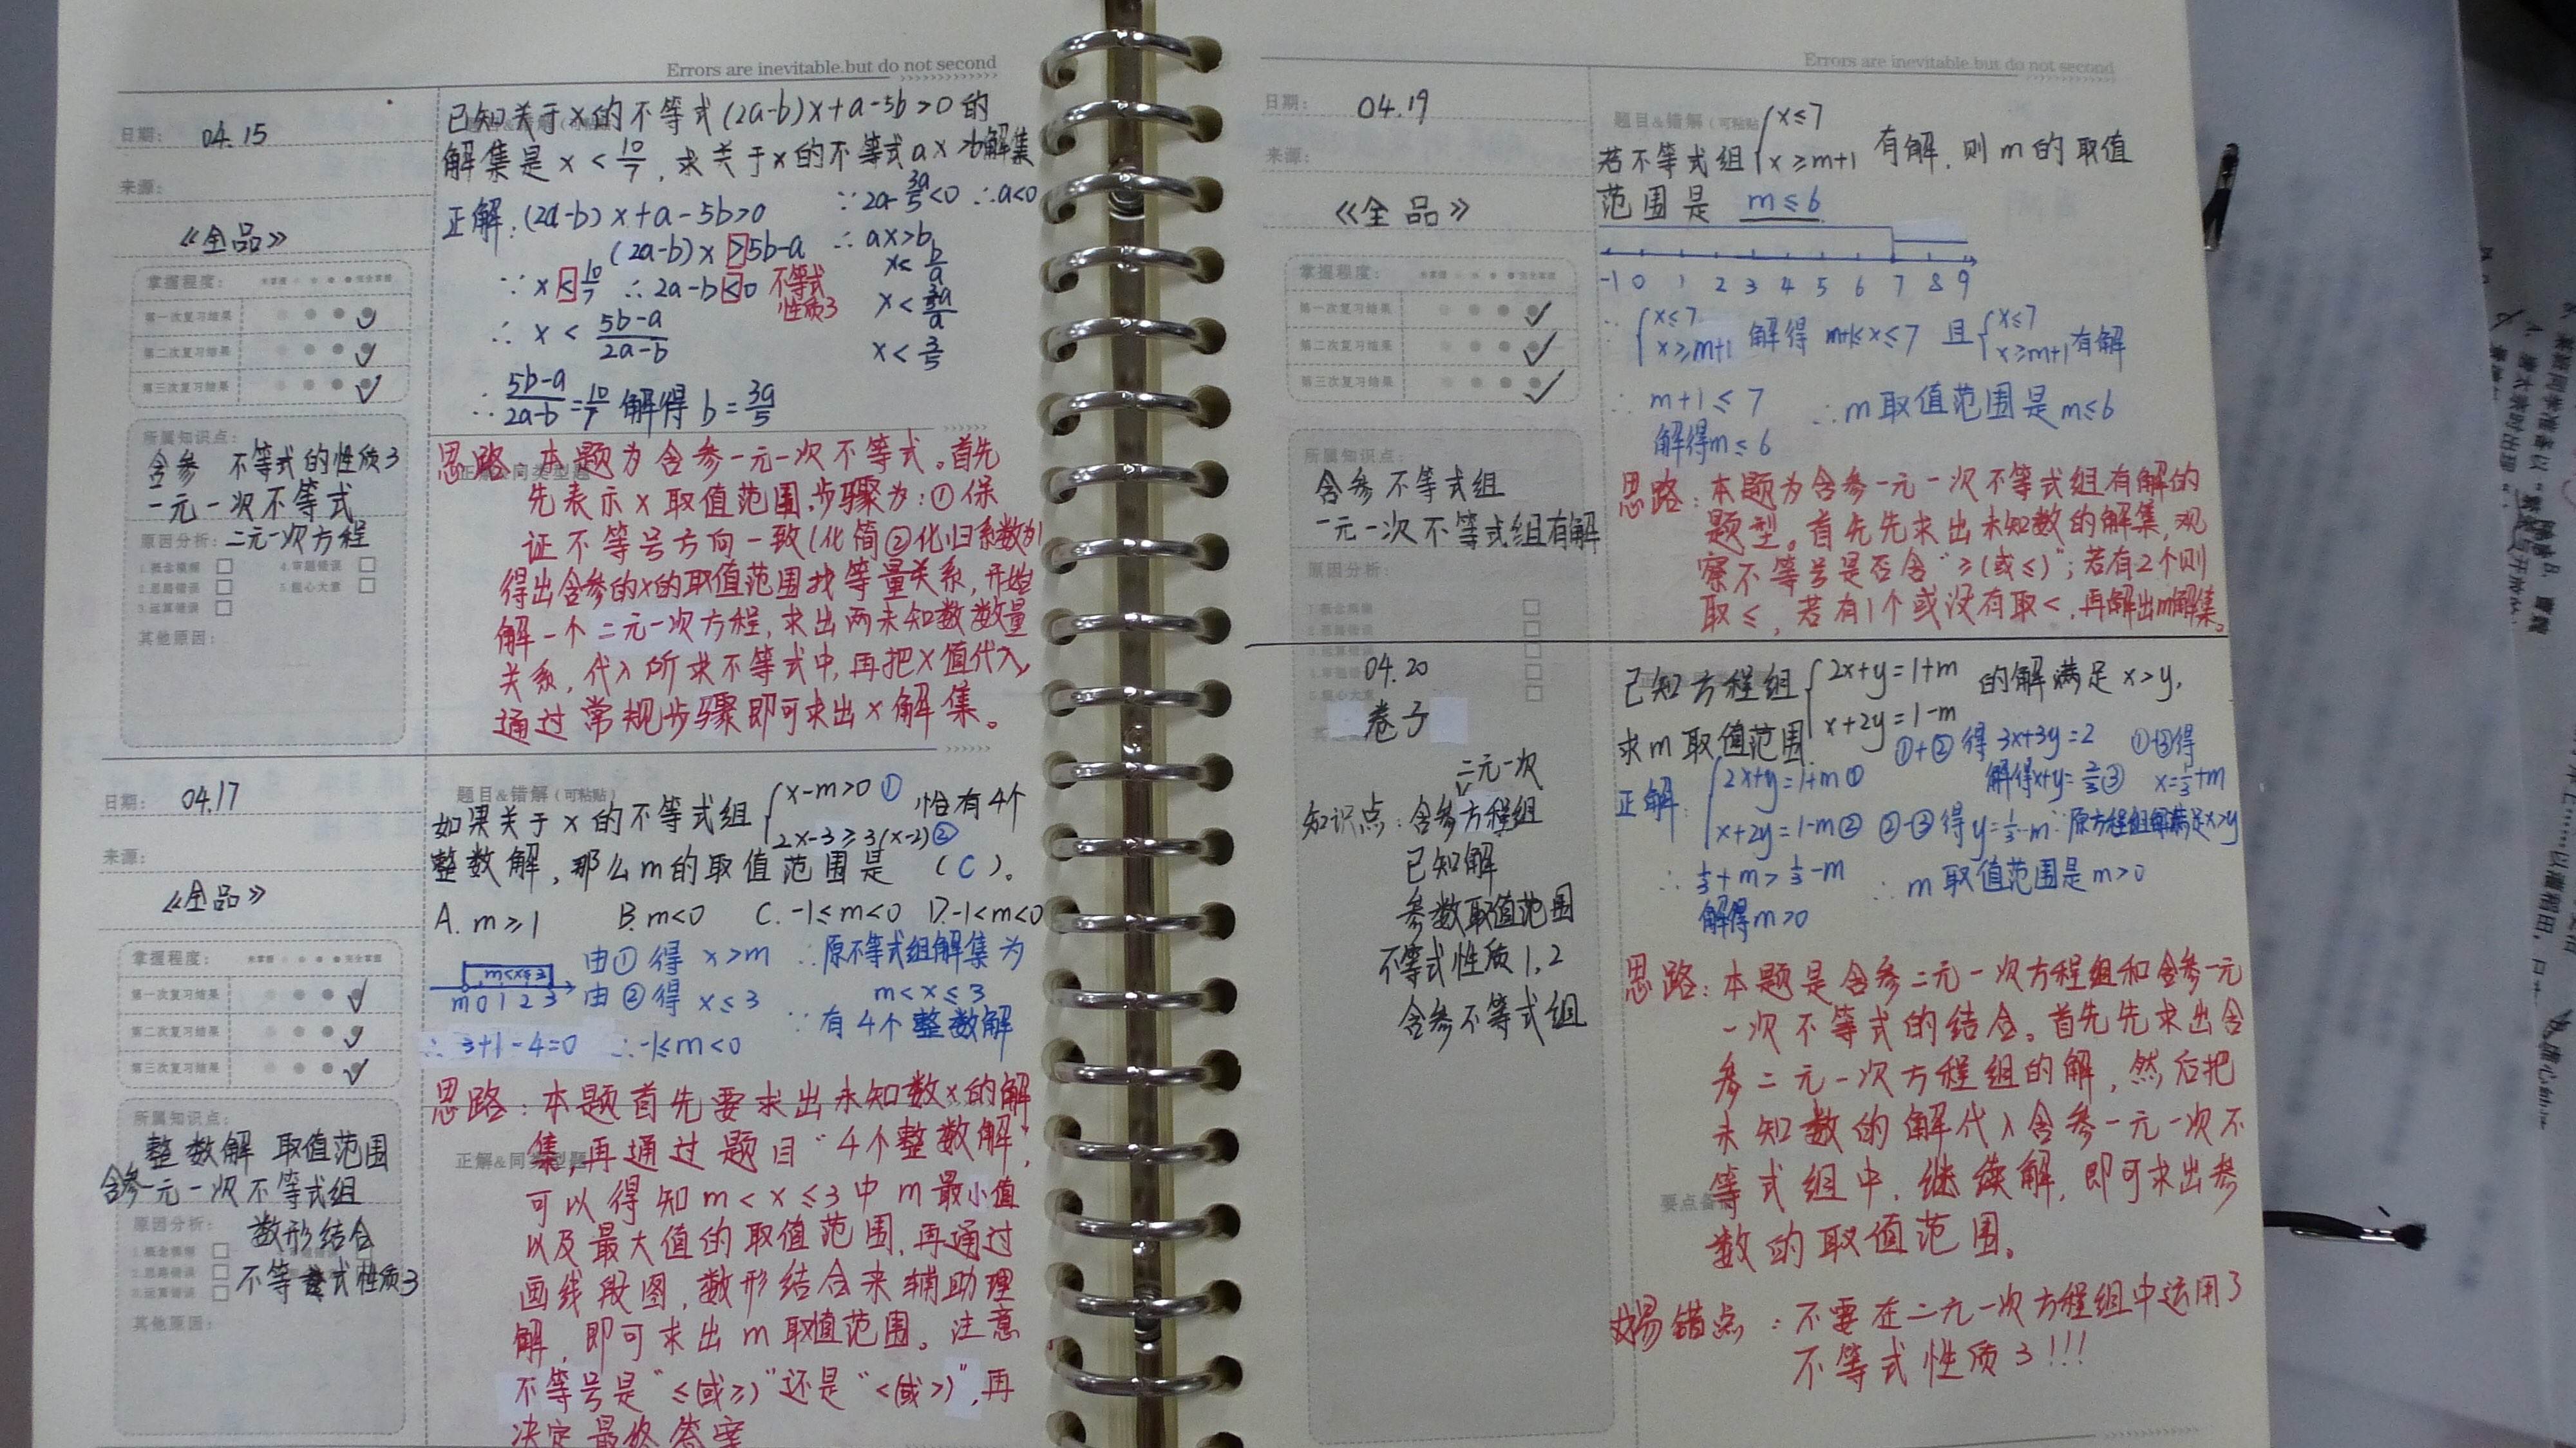 Errors are inevitable.but do not second
日期： 04.15
来源：
《全品》
掌握程度：
第一次复习结果
第二次复习结果
第三次复习结果
所属知识点：
含参 不等式的性质3
一元一次不等式
原因分析： 二元一次方程
1.概念模糊 4.审题错误
2.思路错误 5.粗心大意
3.运算错误
其他原因：
已知关于x的不等式(2a-b)x+a-5b>0的
解集是x<10/7，求关于x的不等式ax>b解集
正解：(2a-b)x+a-5b>0
(2a-b)x>5b-a
∵x<10/7 ∴2a-b<0 不等式
性质3
∴x<(5b-a)/(2a-b)
∴(5b-a)/(2a-b)=10/7 解得b=3a/5
∵2a-3a/5<0 ∴a<0
∴ax>b
x<b/a
x<(3a/5)/a
x<3/5
思路：本题为含参一元一次不等式。首先
先表示x取值范围，步骤为：①保
证不等号方向一致(化简②化归系数为1
得出含参的x的取值范围找等量关系，开始
解一个二元一次方程，求出两未知数数量
关系，代入所求不等式中，再把x值代入，
通过常规步骤即可求出x解集。
日期： 04.17
来源：
《全品》
掌握程度：
第一次复习结果
第二次复习结果
第三次复习结果
所属知识点：
整数解 取值范围
含参一元一次不等式组
原因分析： 数形结合
不等式性质3
其他原因：
题目&错解（可粘贴）
如果关于x的不等式组{x-m>0① 恰有4个
2x-3≥3(x-2)②
整数解，那么m的取值范围是（C）。
A. m≥1 B. m<0 C. -1≤m<0 D. -1<m<0
m<x≤3
m 0 1 2 3
由①得 x>m ∴原不等式组解集为
由②得 x≤3 m<x≤3
∵有4个整数解
∴3+1-4=0 ∴-1≤m<0
思路：本题首先要求出未知数x的解
集，再通过题目“4个整数解”，
正解&同类型题
可以得知m<x≤3中m最小值
以及最大值的取值范围，再通过
画线段图，数形结合来辅助理
解，即可求出m取值范围。注意
不等号是“≤(或≥)”还是“<(或>)”，再
决定最终答案
Errors are inevitable.but do not second
日期： 04.19
来源：
《全品》
掌握程度：
第一次复习结果
第二次复习结果
第三次复习结果
所属知识点：
含参 不等式组
一元一次不等式组有解
原因分析：
题目&错解（可粘贴
若不等式组{x≤7 有解，则m的取值
x≥m+1
范围是 m≤6
-1 0 1 2 3 4 5 6 7 8 9
∵{x≤7 解得 m+1≤x≤7 且{x≤7
x≥m+1 x≥m+1有解
∴ m+1≤7 ∴m取值范围是m≤6
解得m≤6
思路：本题为含参一元一次不等式组有解的
题型。首先先求出未知数的解集，观
察不等号是否含“≥(或≤)”；若有2个则
取≤，若有1个或没有取<，再解出m解集。
04.20
卷子
知识点：含参二元一次方程组
已知解
参数取值范围
不等式性质1,2
含参不等式组
已知方程组{2x+y=1+m 的解满足x>y，
x+2y=1-m
求m取值范围
正解：{2x+y=1+m①
x+2y=1-m②
①+②得3x+3y=2
解得x+y=2/3③
①-③得
x=1/3+m
②-③得y=1/3-m ∵原方程组解满足x>y
∴1/3+m>1/3-m ∴m取值范围是m>0
解得m>0
思路：本题是含参二元一次方程组和含参一元
一次不等式的结合。首先先求出含
参二元一次方程组的解，然后把
未知数的解代入含参一元一次不
等式组中，继续解，即可求出参
数的取值范围。
易错点：不要在二元一次方程组中运用了
不等式性质3!!!